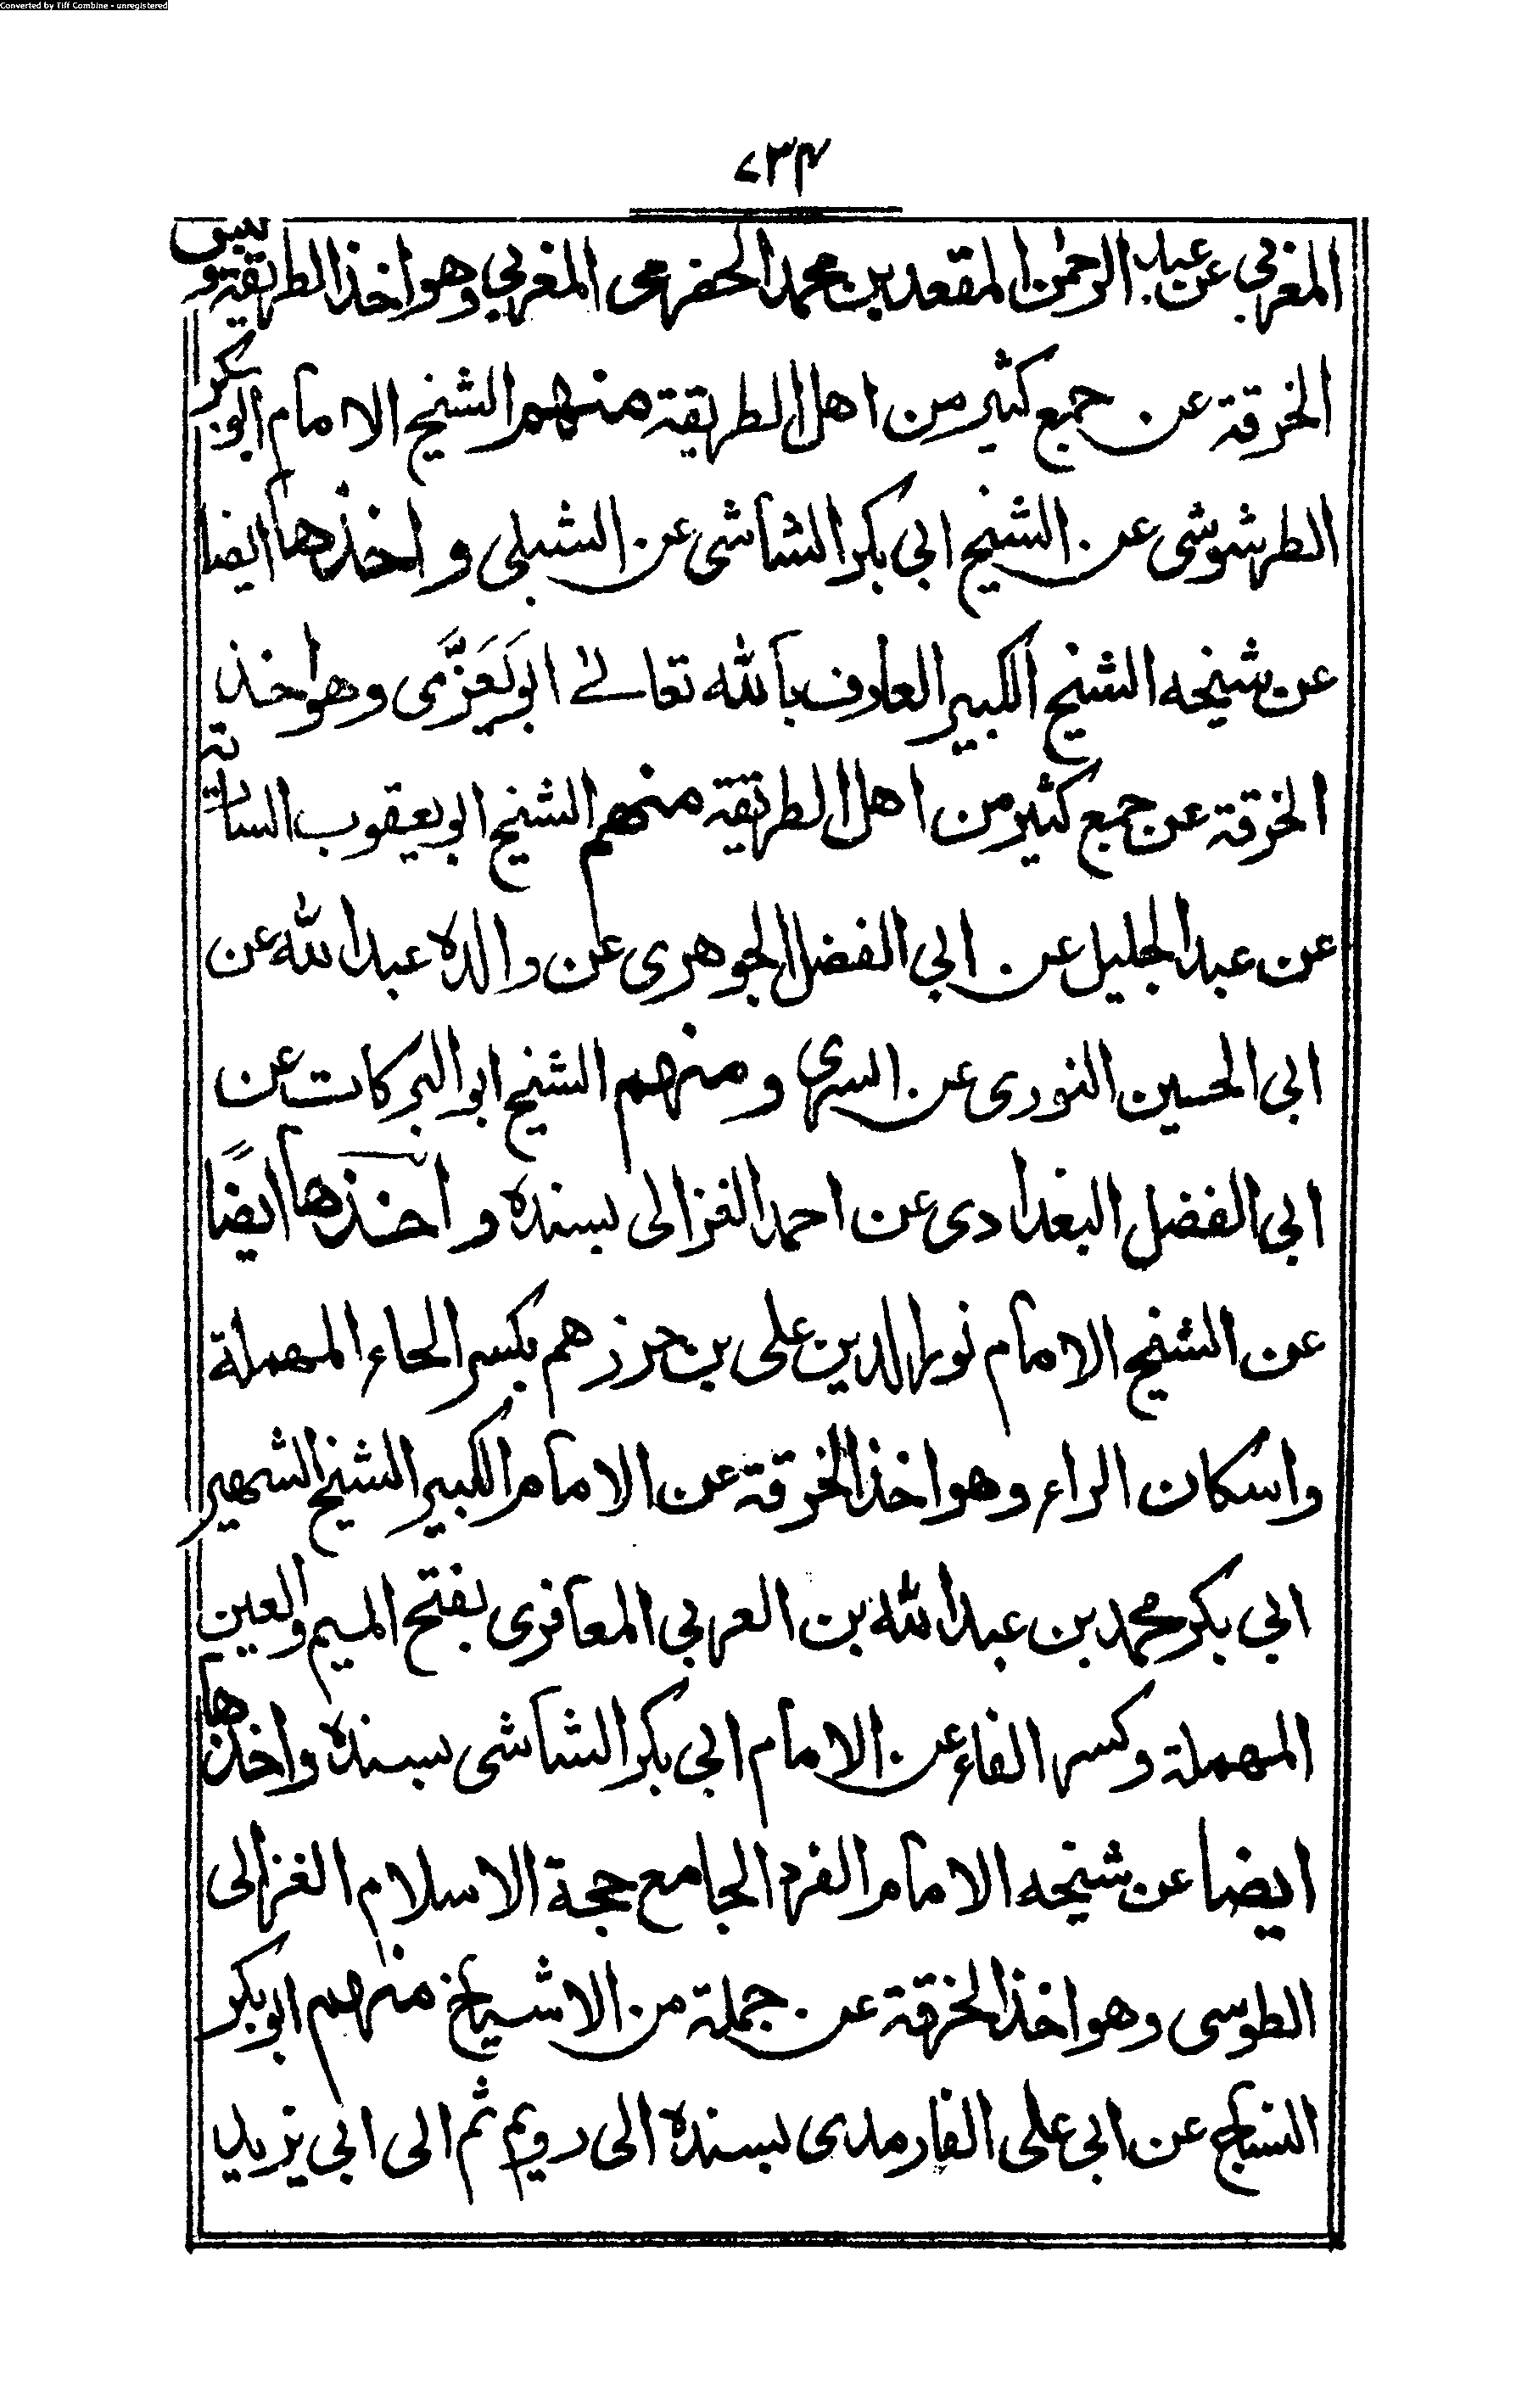 Converted by Tiff Combine - unregistered
المغربي عن عبد الرحمن المقعد بن محمد الحضرمى المغربي وهو اخذ الطريقة و
الخرقة عن جمع كثير من اهل الطريقة منهم الشيخ الامام ابو بكر
الطرشوشى عن الشيخ ابي بكر الشاشى عن الشبلى و اخذها ايضا
عن شيخه الشيخ الكبير العارف بالله تعالى ابو يَعَزّى وهو اخذ
الخرقة عن جمع كثير من اهل الطريقة منهم الشيخ ابو يعقوب
عن عبد الجليل عن ابي الفضل الجوهرى عن والده عبد الله عن
ابي الحسين النورى عن السرى و منهم الشيخ ابو البركات عن
ابي الفضل البغدادى عن احمد الغزالى بسنده و اخذها ايضًا
عن الشيخ الامام نور الدين على بن حرزهم بكسر الحاء المهملة
واسكان الراء وهو اخذ الخرقة عن الامام الكبير الشيخ الشهير
ابي بكر محمد بن عبد الله بن العربي المعافرى بفتح الميم والعين
المهملة وكسر الفاء عن الامام ابي بكر الشاشى بسنده واخذها
ايضا عن شيخه الامام الفرد الجامع حجة الاسلام الغزالى
الطوسى وهو اخذ الخرقة عن جملة من الاشياخ منهم ابو بكر
النساج عن ابي على الفارمدى بسنده الى رويم ثم الى ابي يزيد